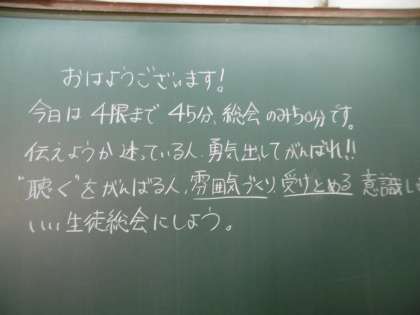 おはようございます!
今日は4限まで45分、総会のみ50分です。
伝えようか迷っている人、勇気出してがんばれ!!
"聴く"をがんばる人、雰囲気づくり、受けとめる意識し
いい生徒総会にしよう。